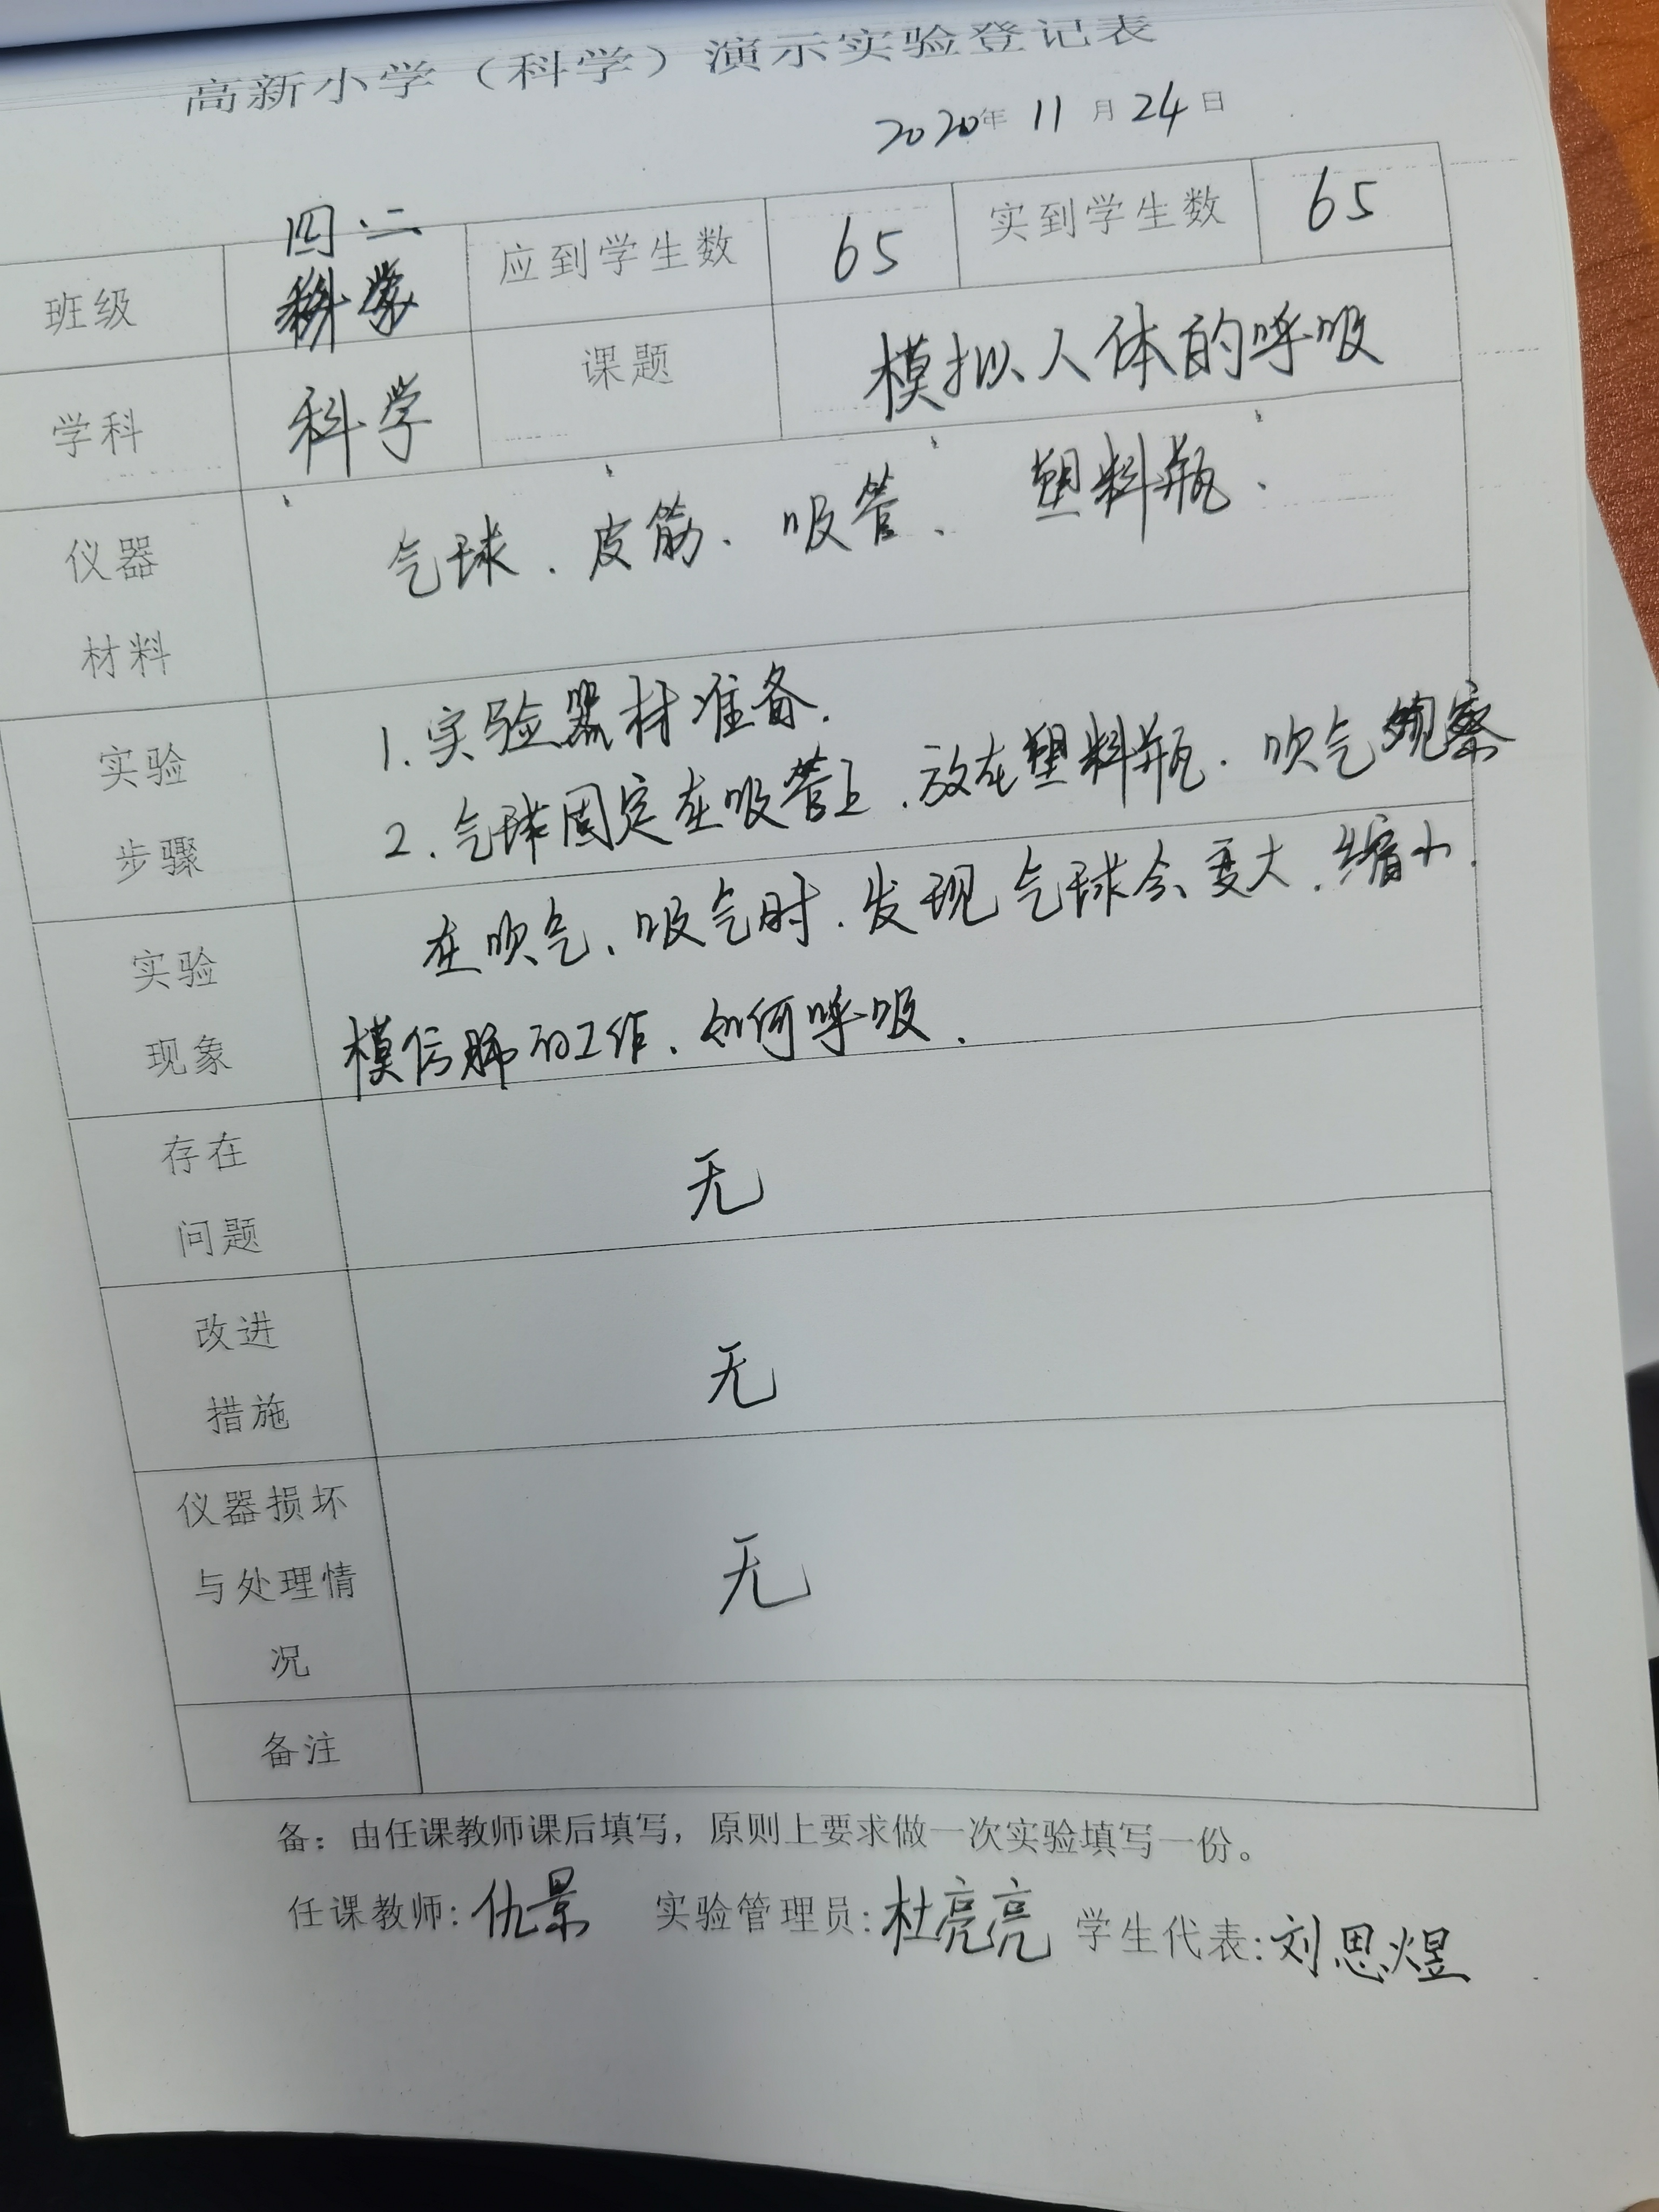 高新小学（科学）演示实验登记表
2020年 11 月 24 日
四.二
班级 应到学生数 65 实到学生数 65
学科 科学 课题 模拟人体的呼吸
仪器 气球、皮筋、吸管、塑料瓶.
材料
实验 1.实验器材准备.
步骤 2.气球固定在吸管上.放在塑料瓶.吹气观察
实验 在吹气、吸气时.发现气球会变大.缩小.
现象 模仿肺的工作、如何呼吸.
存在 无
问题
改进 无
措施
仪器损坏
与处理情 无
况
备注
备：由任课教师课后填写，原则上要求做一次实验填写一份。
任课教师:仇景 实验管理员:杜亮亮 学生代表:刘思煜